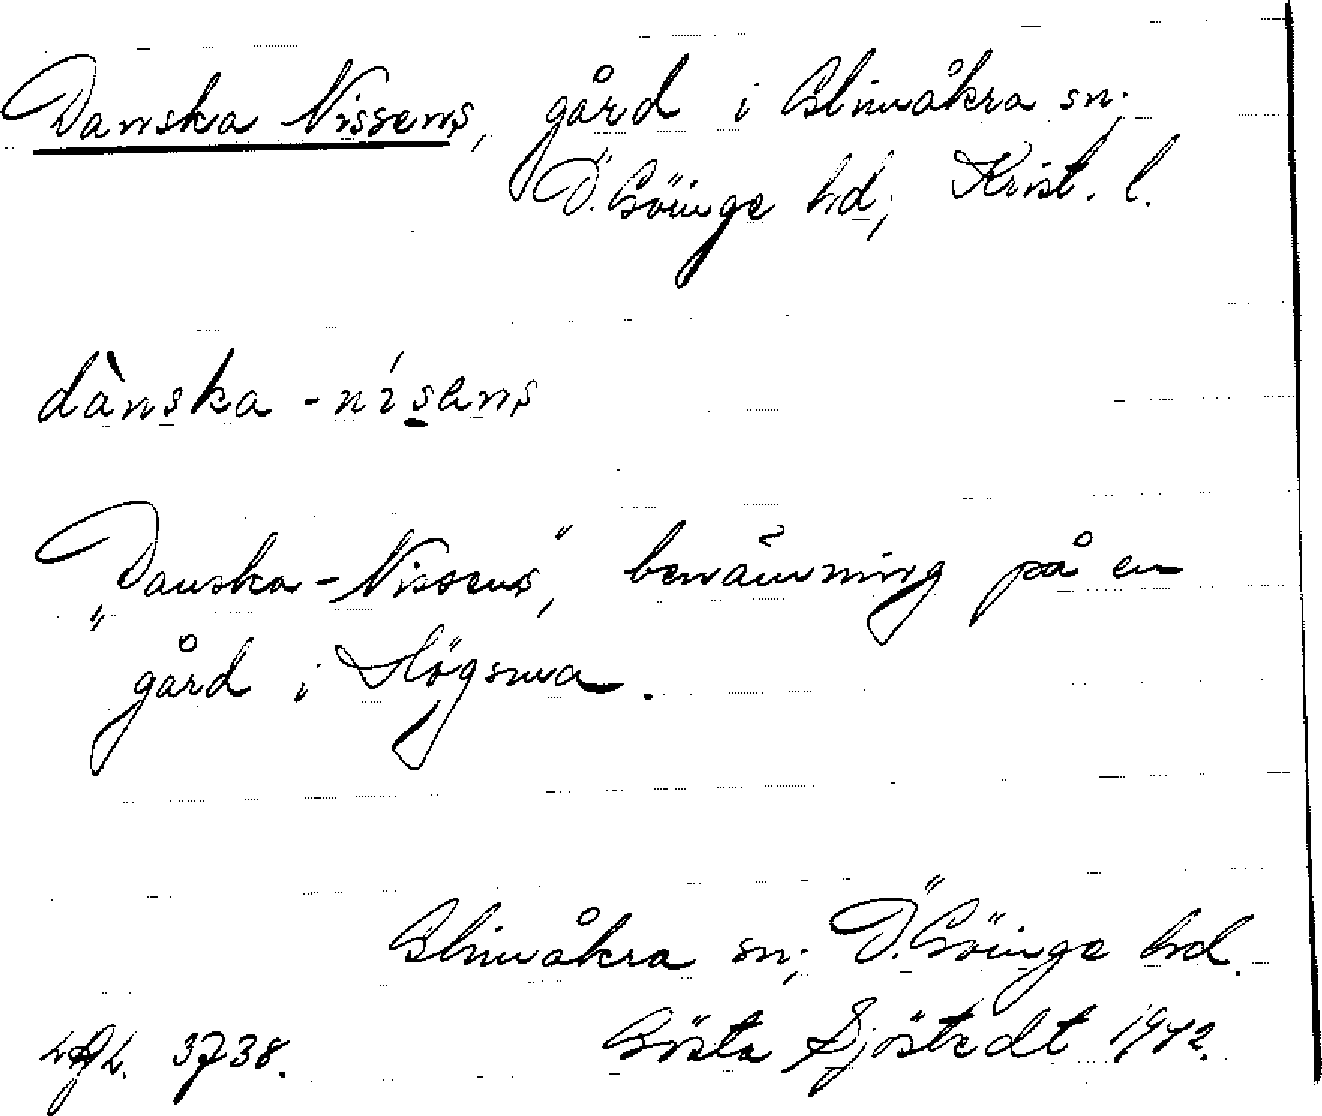 Danska Nissens, gård i Glimåkra sn;
Ö. Göinge hd, Krist. l.
dànska - nísens
"Danska-Nissens", benämning på en
gård i Högsma.
Glimåkra sn; Ö. Göinge hd.
3738. Gösta Sjöstedt 1942.